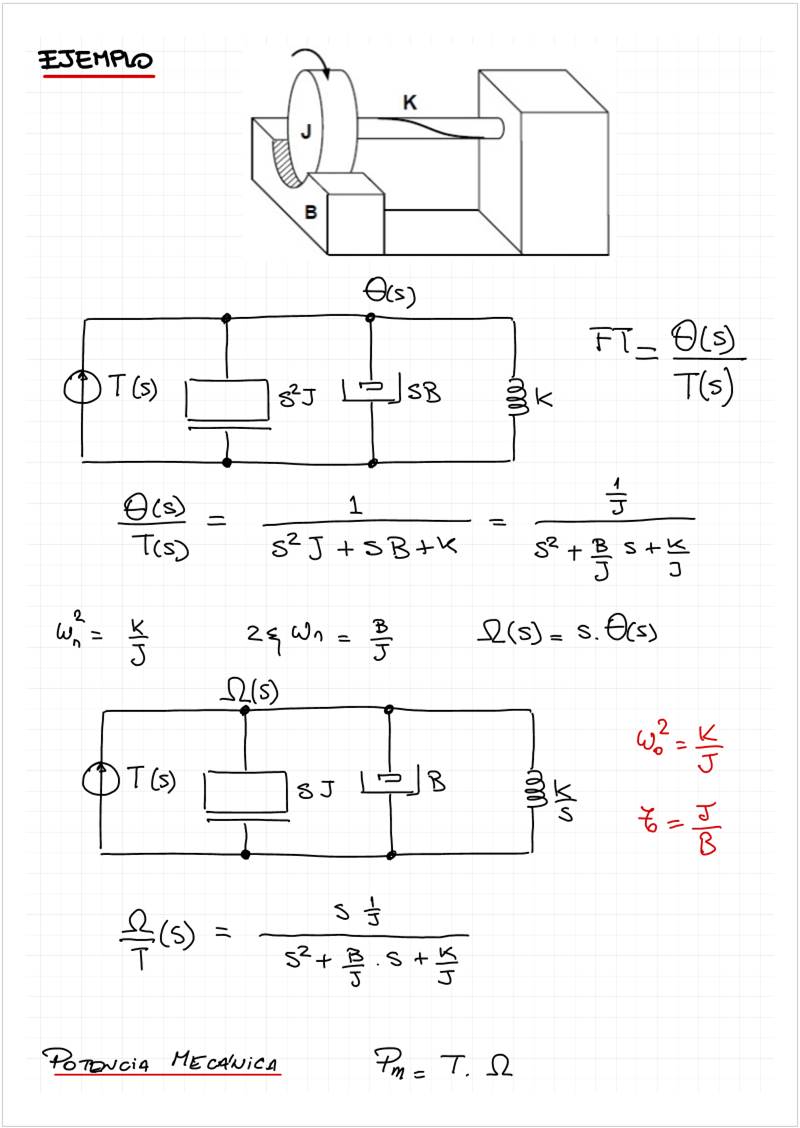 EJEMPLO
K
J
B
θ(s)
T(s)
s²J
sB
K
FT = θ(s)/T(s)
θ(s)/T(s) = 1/(s²J + sB + K) = (1/J)/(s² + B/J s + K/J)
ωn² = K/J
2ξωn = B/J
Ω(s) = s.θ(s)
Ω(s)
T(s)
sJ
B
K/s
ω₀² = K/J
τ₀ = J/B
Ω/T(s) = s 1/J / (s² + B/J . s + K/J)
POTENCIA MECÁNICA
Pm = T. Ω